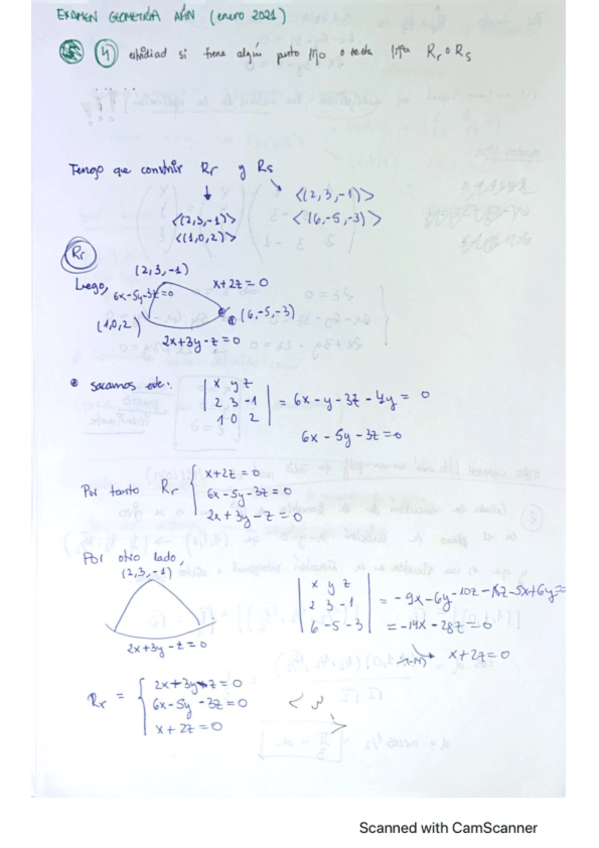 EXAMEN GEOMETRÍA AFÍN (enero 2021)
④ estudiad si tiene algún punto fijo o recta fija Rr o Rs
Tengo que construir Rr y Rs
<(2,3,-1)>
<(6,-5,-3)>
<(2,3,-1)>
<(1,0,2)>
Rr
(2,3,-1)
Luego, 6x-5y-3z=0 x+2z=0
(1,0,2) (6,-5,-3)
2x+3y-z=0
sacamos este:
| x y z |
| 2 3 -1 | = 6x-y-3z-4y = 0
| 1 0 2 |
6x-5y-3z=0
Por tanto Rr { x+2z=0
6x-5y-3z=0
2x+3y-z=0
Por otro lado,
(2,3,-1)
2x+3y-z=0
| x y z |
| 2 3 -1 | = -9x-6y-10z-18z-5x+6y=
| 6 -5 -3 | = -14x-28z=0
x+2z=0
Rr = { 2x+3y-z=0
6x-5y-3z=0
x+2z=0
Scanned with CamScanner